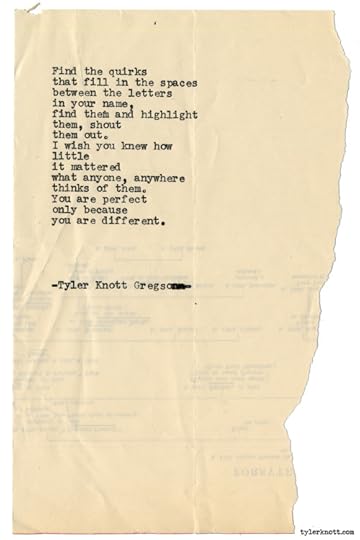 Find the quirks
that fill in the spaces
between the letters
in your name,
find them and highlight
them, shout
them out.
I wish you knew how
little
it mattered
what anyone, anywhere
thinks of them.
You are perfect
only because
you are different.
-Tyler Knott Gregson-
tylerknott.com